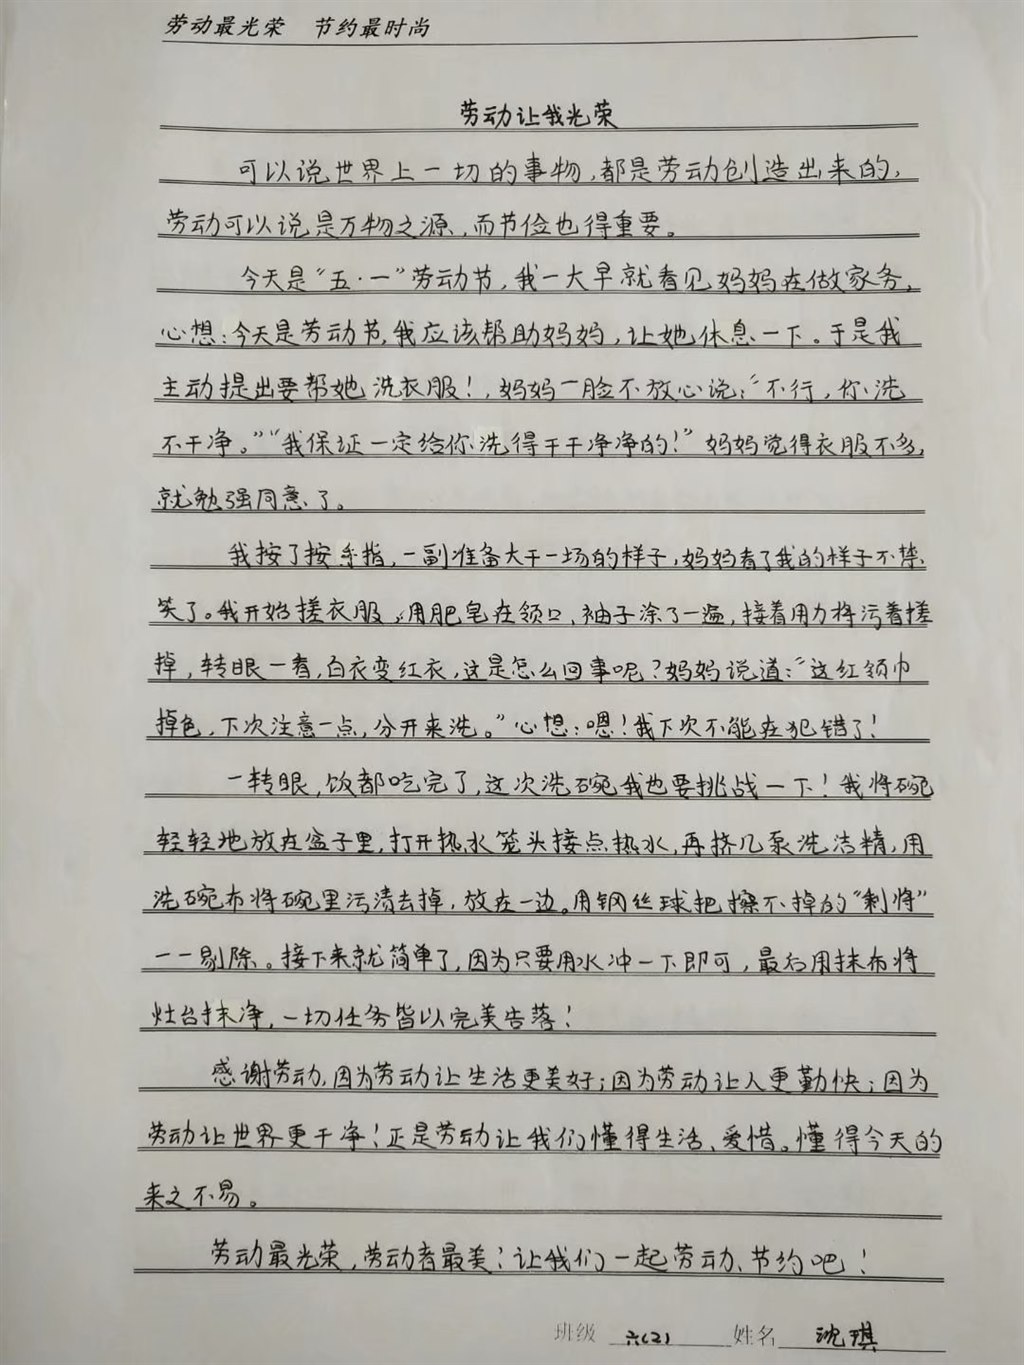 劳动最光荣　节约最时尚
劳动让我光荣
可以说世界上一切的事物,都是劳动创造出来的,
劳动可以说是万物之源,而节俭也得重要。
今天是“五·一”劳动节,我一大早就看见妈妈在做家务,
心想:今天是劳动节,我应该帮助妈妈,让她休息一下。于是我
主动提出要帮她洗衣服!,妈妈一脸不放心说:“不行,你洗
不干净。”“我保证一定给你洗得干干净净的!”妈妈觉得衣服不多,
就勉强同意了。
我按了按手指,一副准备大干一场的样子,妈妈看了我的样子不禁
笑了。我开始搓衣服,用肥皂在领口、袖子涂了一遍,接着用力将污着搓
掉,转眼一看,白衣变红衣,这是怎么回事呢?妈妈说道:“这红领巾
掉色,下次注意一点,分开来洗。”心想:嗯!我下次不能在犯错了!
一转眼,饭都吃完了,这次洗碗我也要挑战一下!我将碗
轻轻地放在盆子里,打开热水笼头接点热水,再挤几泵洗洁精,用
洗碗布将碗里污渍去掉,放在一边。用钢丝球把擦不掉的“剩将”
一一剔除。接下来就简单了,因为只要用水冲一下即可,最后用抹布将
灶台抹净,一切任务皆以完美告落!
感谢劳动,因为劳动让生活更美好;因为劳动让人更勤快;因为
劳动让世界更干净!正是劳动让我们懂得生活、爱惜。懂得今天的
来之不易。
劳动最光荣,劳动者最美!让我们一起劳动、节约吧!
班级 六(2) 姓名 沈琪